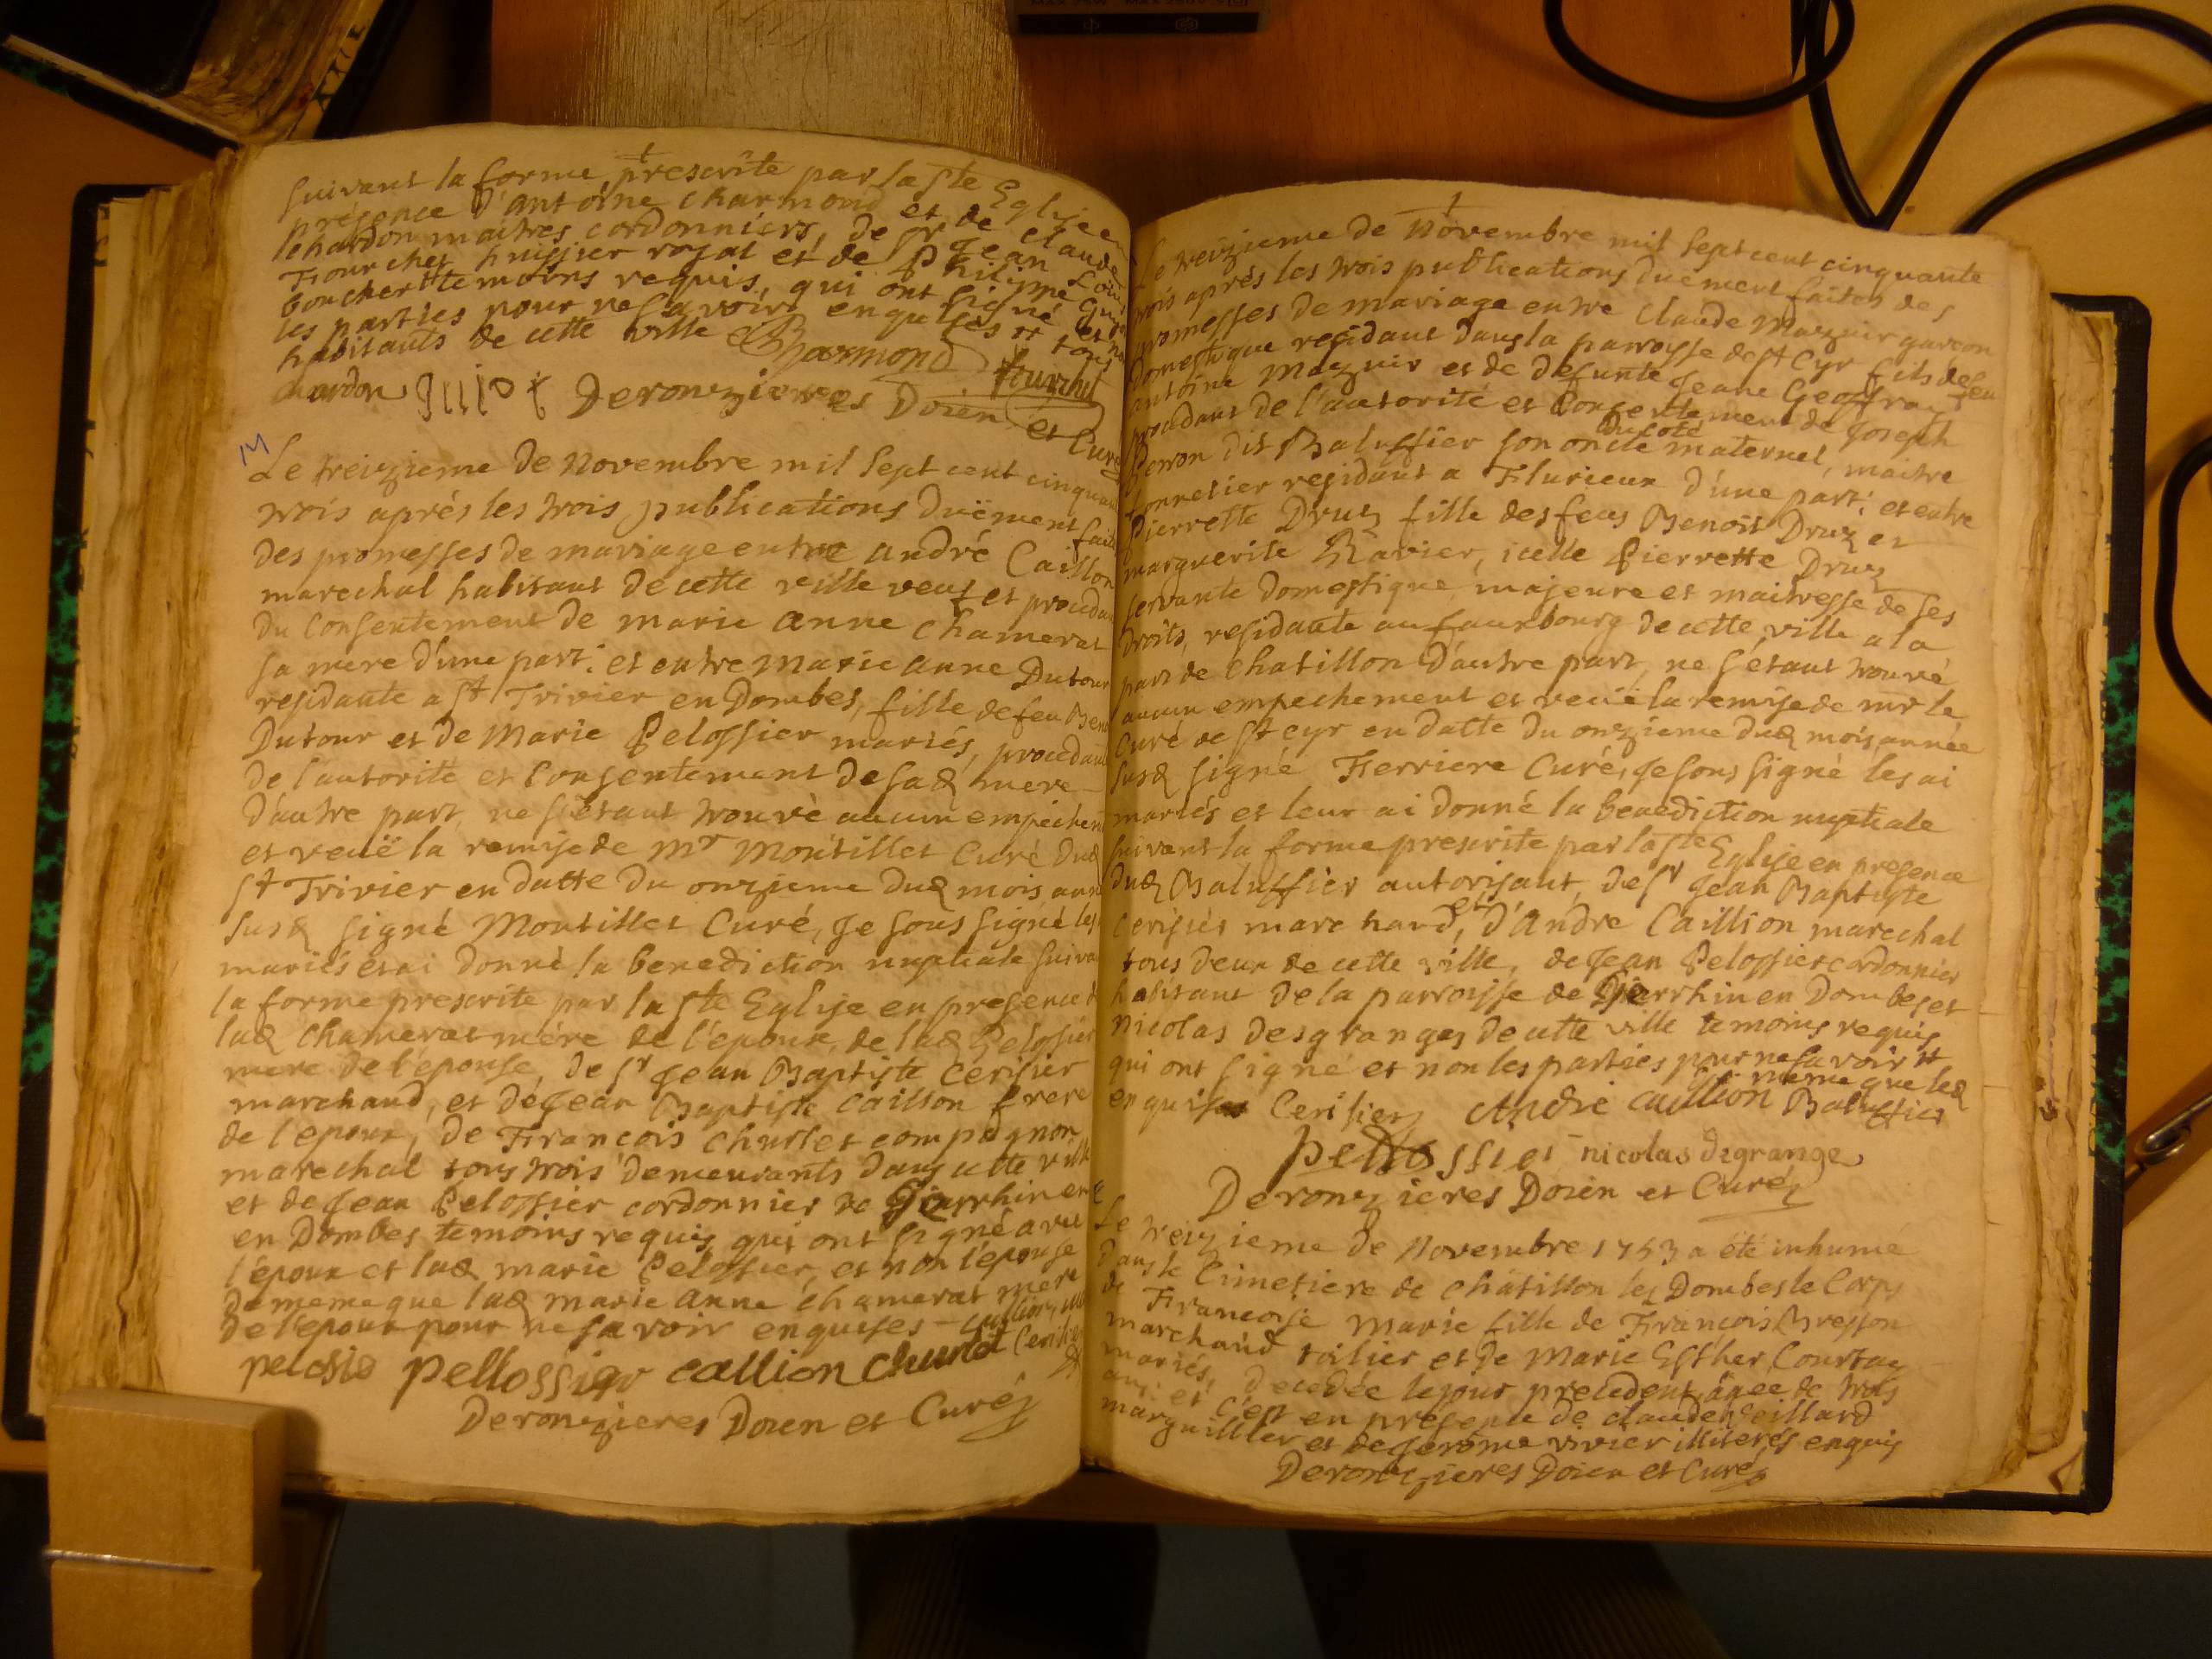 suivant la forme prescrite par la Ste Eglise en
présence d'antoine charmond et de claude
lehardon maitres cordonniers, de Sr Jean
Fourchet huissier royal et de Philippe
boucher temoins requis, qui ont signé et
les parties pour ne savoir enquises et tous
habitants de cette ville Charmond
chardon Fourchet
Deronzieres Doien et Curé
M
Le treizieme de Novembre mil sept cent cinquan
trois aprés les trois publications duëment fait
des promesses de mariage entre andré Caillon
marechal habitant de cette ville veuf et procedan
du Consentement de marie anne Chamerat
sa mere d'une part: et entre marie anne Dutour
residante a St Trivier en Dombes, fille de feu Ben
Dutour et de Marie Pelossier mariés, procedant
de l'autorité et Consentement de sad mere
d'autre part, ne s'étant trouvé aucun empechem
et veuë la remise de Mr Moutillet Curé dud
St Trivier en datte du onzieme dud mois ann
susd signé Moutillet Curé, Je sous signé les
mariés et ai donné la benediction nuptiale suiva
la forme prescrite par la Ste Eglise en presence d
lad Chamerat mére de l'epoux, de lad Pelossier
mere de l'épouse, de Sr Jean Baptiste Cerisier
marchand, et de Jean Baptiste Caillon frere
de l'epoux, de François Churlet compagnon
marechal tous trois demeurants dans cette ville
et de Jean Pelossier cordonnier de
en Dombes temoins requis qui ont signé avec
l'époux et lad marie Pelossier, et non l'épouse
de meme que lad marie anne chamerat mere
de l'epoux pour ne savoir enquises
pelosie pellossier callion Cerisier
Deronzieres Doien et Curé
Le treizieme de Novembre mil sept cent cinquante
trois aprés les trois publications duëment faites des
promesses de mariage entre Claude Mazuir garcon
domestique residant dans la parroisse de St Cyr fils de feu
antoine Mazuir et de defunte Jeane Geoffray
procedant de l'autorité et Consentement de Joseph
Perron dit Baluffier son oncle du coté maternel, maitre
tonnelier residant a Flurieux d'une part: et entre
Pierrette Druz fille des feus Benoit Druz et
marguerite Ravier, icelle Pierrette Druz
servante domestique, majeure et maitresse de ses
droits, residante au fauxbourg de cette ville a la
part de Chatillon d'autre part, ne s'étant trouvé
aucun empechement et veuë la remise de mr le
Curé de St Cyr en datte du onzieme dud mois année
susd signé Ferriere Curé, Je sous signé les ai
mariés et leur ai donné la benediction nuptiale
suivant la forme prescrite par la Ste Eglise en presence
dud Baluffier autorisant, de Sr Jean Baptiste
Cerisier marchand, et d'André Caillion marechal
tous deux de cette ville, de Jean Pelossier cordonnier
habitant de la parroisse de en Dombes et
nicolas desgranges de cette ville temoins requis
qui ont signé et non les parties pour ne savoir et
meme que led
enquises Cerisier André caillion Baluffier
pellossier nicolas degrange
Deronzieres Doien et Curé
Le treizieme de Novembre 1753 a été inhumé
dans le Cimetiere de Châtillon les Dombes le Corps
de Francoise marie fille de François Bresson
marchand toilier et de Marie Esther Courtay
mariés, decedée le jour precedent, agee de trois
ans: et c'est en presence de claude Veillard
marguillier et de Jerome vivier illiterés enquis
Deronzieres Doien et Curé